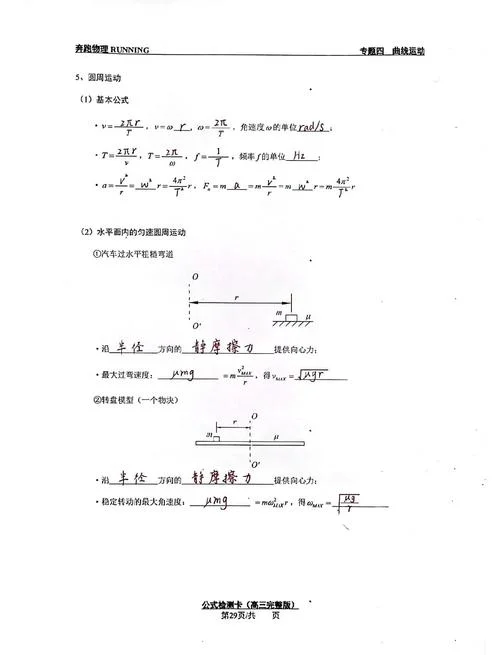 奔跑物理 RUNNING 专题四 曲线运动
5、圆周运动
（1）基本公式
·v=2πr/T，v=ω r，ω=2π/T，角速度ω的单位rad/s；
·T=2πr/v，T=2π/ω，f=1/T，频率f的单位 Hz ；
·a=v²/r=w²r=4π²/T²r，Fₙ=m a =m v²/r=m w² r=m 4π²/T² r
（2）水平面内的匀速圆周运动
①汽车过水平粗糙弯道
O
r
m μ
O'
·沿 半径 方向的 静摩擦力 提供向心力；
·最大过弯速度： μmg =m v²MAX/r，得vMAX=√μgr
②转盘模型（一个物块）
O
r
m μ
O'
·沿 半径 方向的 静摩擦力 提供向心力；
·稳定转动的最大角速度： μmg =mω²MAX r，得ωMAX=√μg/r
公式检测卡（高三完整版）
第29页/共 页